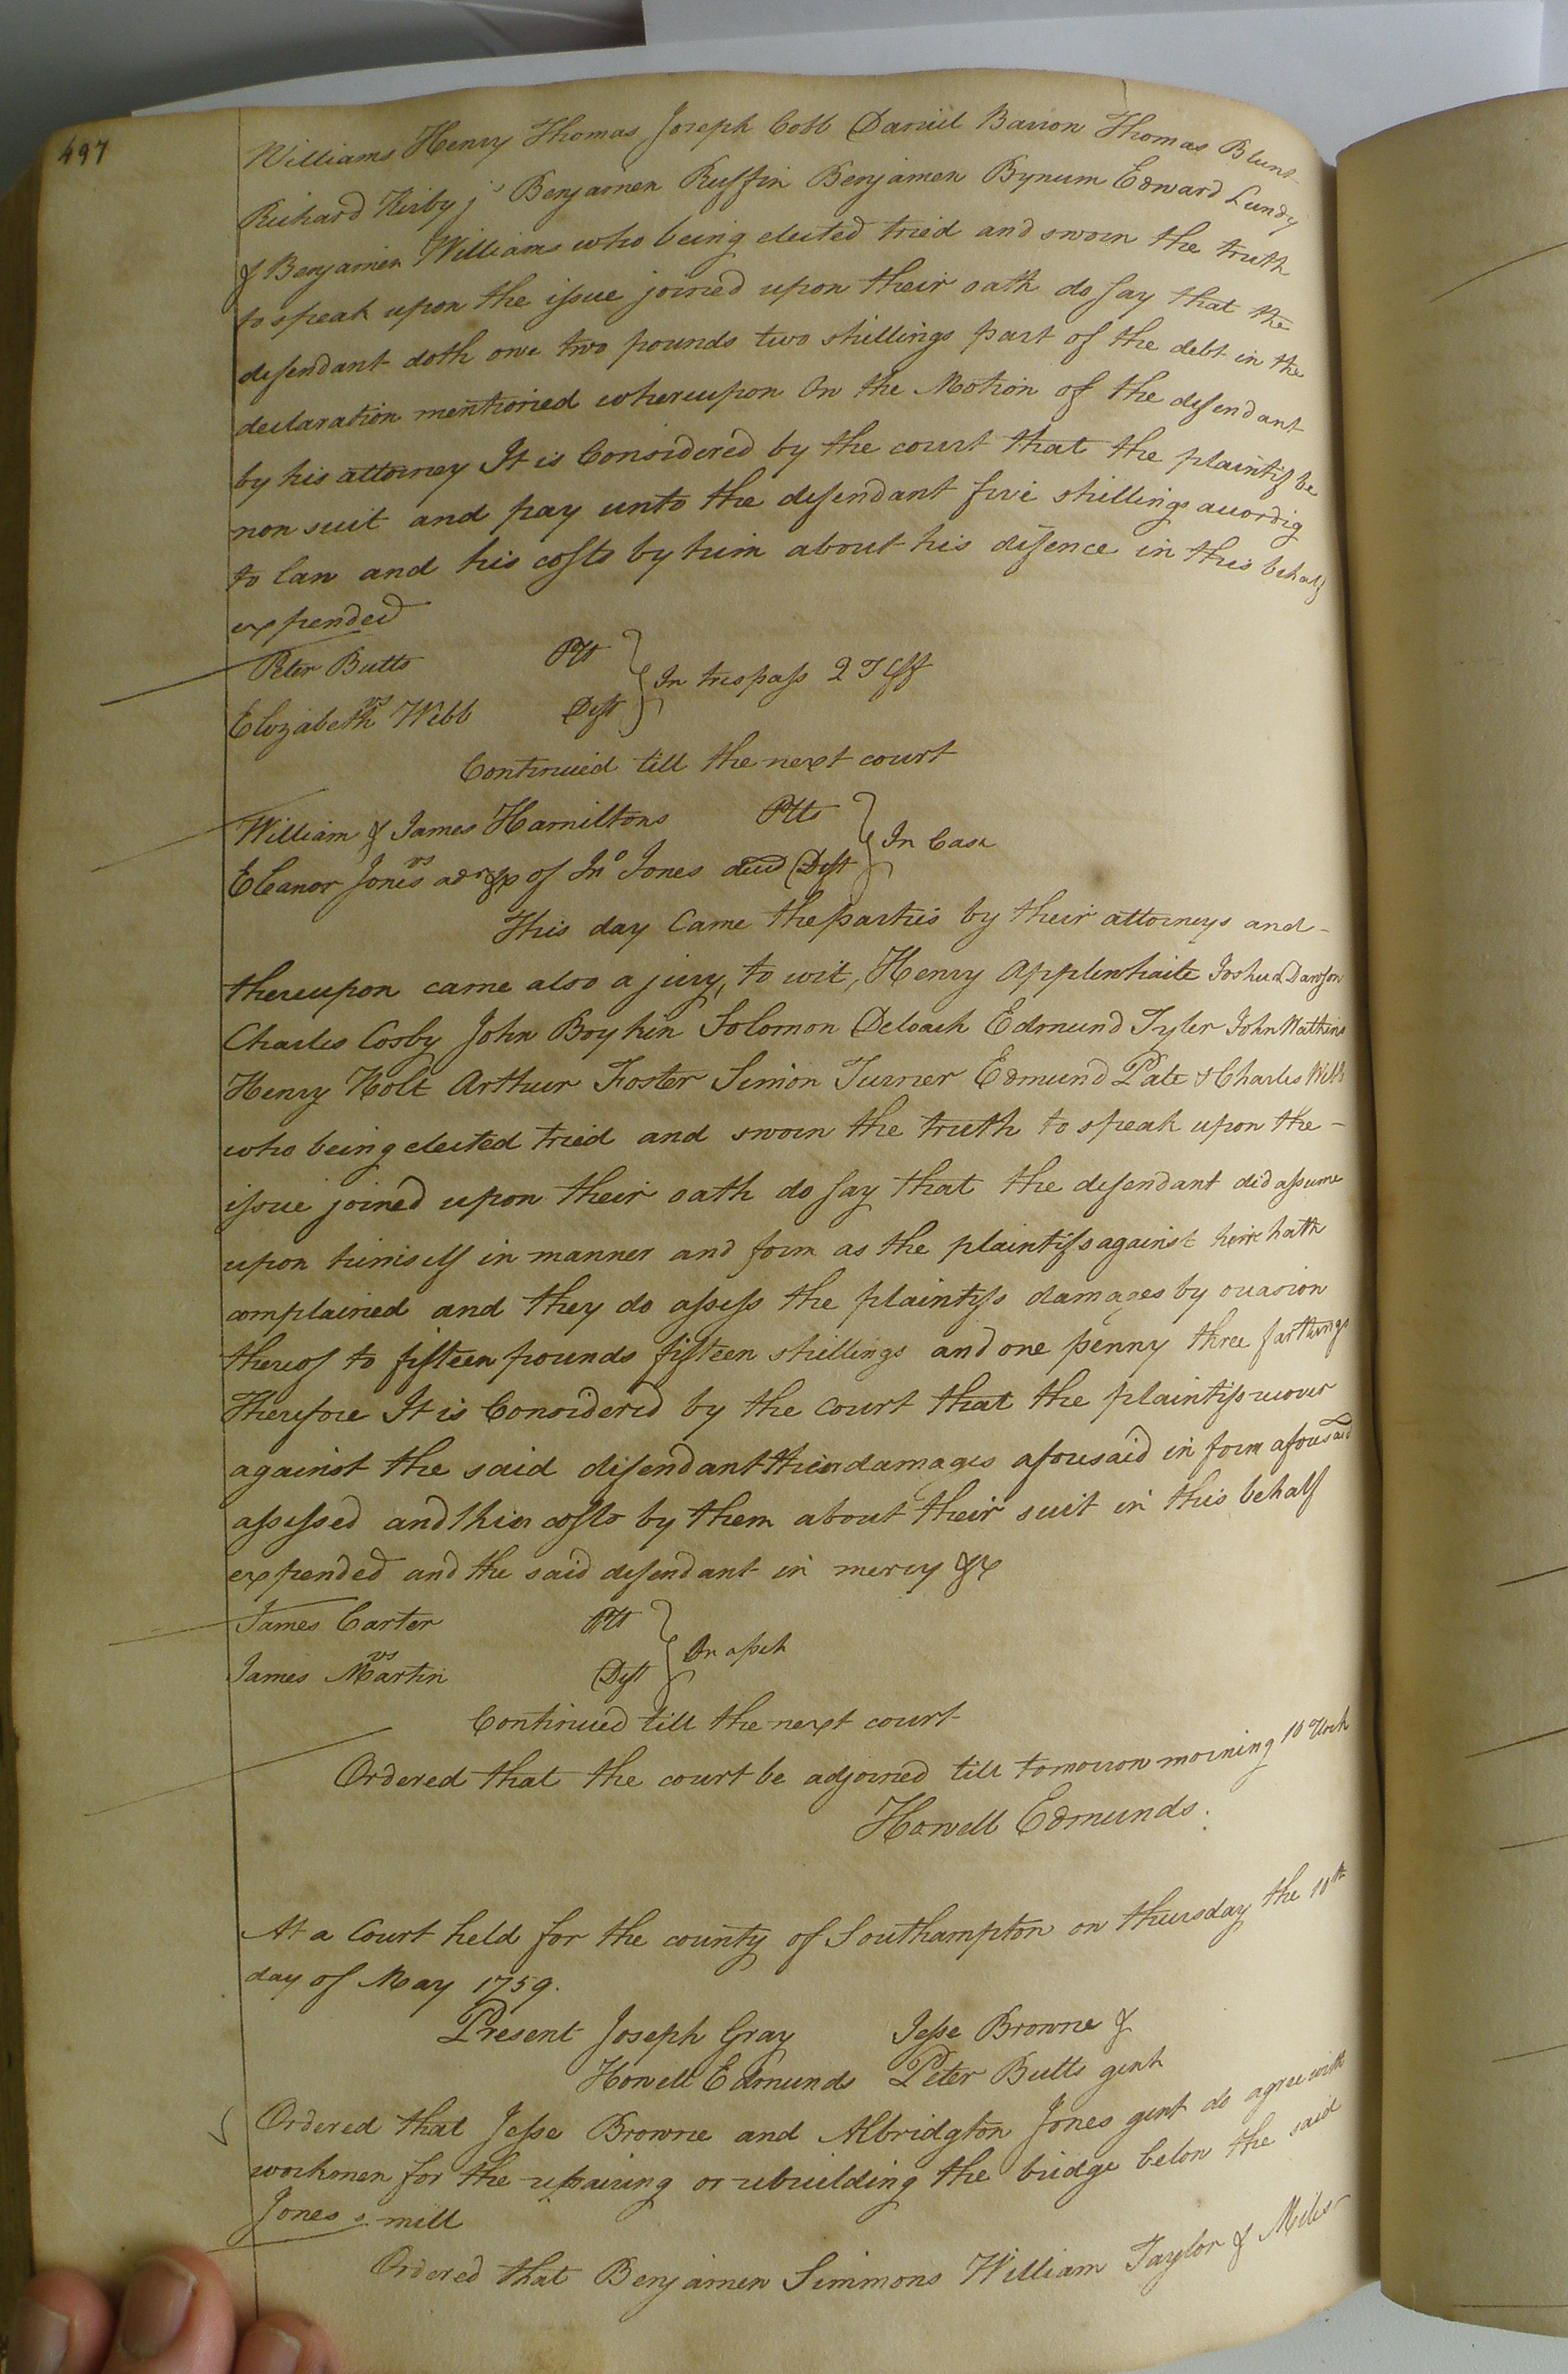 497
Williams Henry Thomas Joseph Cobb Daniel Barron Thomas Blunt
Richard Kirby jr Benjamen Ruffin Benjamen Bynum Edward Lundy
& Benjamen Williams who being elected tried and sworn the truth
to speak upon the issue joined upon their oath do say that the
defendant doth owe two pounds two shillings part of the debt in the
declaration mentioned whereupon On the Motion of the defendant
by his attorney It is Considered by the court that the plaintif be
non suit and pay unto the defendant five shillings accordig
to law and his costs by him about his defence in this behalf
expended
Peter Butts Plt
vs In trespass
Elizabeth Webb Deft
Continued till the next court
William & James Hamiltons Plts
vs In Case
Eleanor Jones of Jno Jones decd Deft
This day Came the parties by their attorneys and
thereupon came also a jury, to wit, Henry Applewhaite Joshua Dawson
Charles Cosby John Boykin Solomon Deloach Edmund Tyler John Watkins
Henry Holt Arthur Foster Simon Turner Edmund Pate & Charles Webb
who being elected tried and sworn the truth to speak upon the
issue joined upon their oath do say that the defendant did assume
upon himself in manner and form as the plaintifs against him hath
complained and they do assess the plaintifs damages by occasion
thereof to fifteen pounds fifteen shillings and one penny three farthings
Therefore It is Considered by the Court that the plaintifs recover
against the said defendant their damages aforesaid in form aforesaid
assessed and their costs by them about their suit in this behalf
expended and the said defendant in mercy &c
James Carter Plt
vs In
James Martin Deft
Continued till the next court
Ordered that the court be adjorned till tomorrow morning 10 Clock
Howell Edmunds.
At a Court held for the county of Southampton on thursday the 10th
day of May 1759.
Present Joseph Gray Jesse Browne &
Howell Edmunds Peter Butts gent
Ordered that Jesse Browne and Albridgton Jones gent do agree with
workmen for the repairing or rebuilding the bridge below the said
Jones s mill
Ordered that Benjamen Simmons William Taylor & Miles